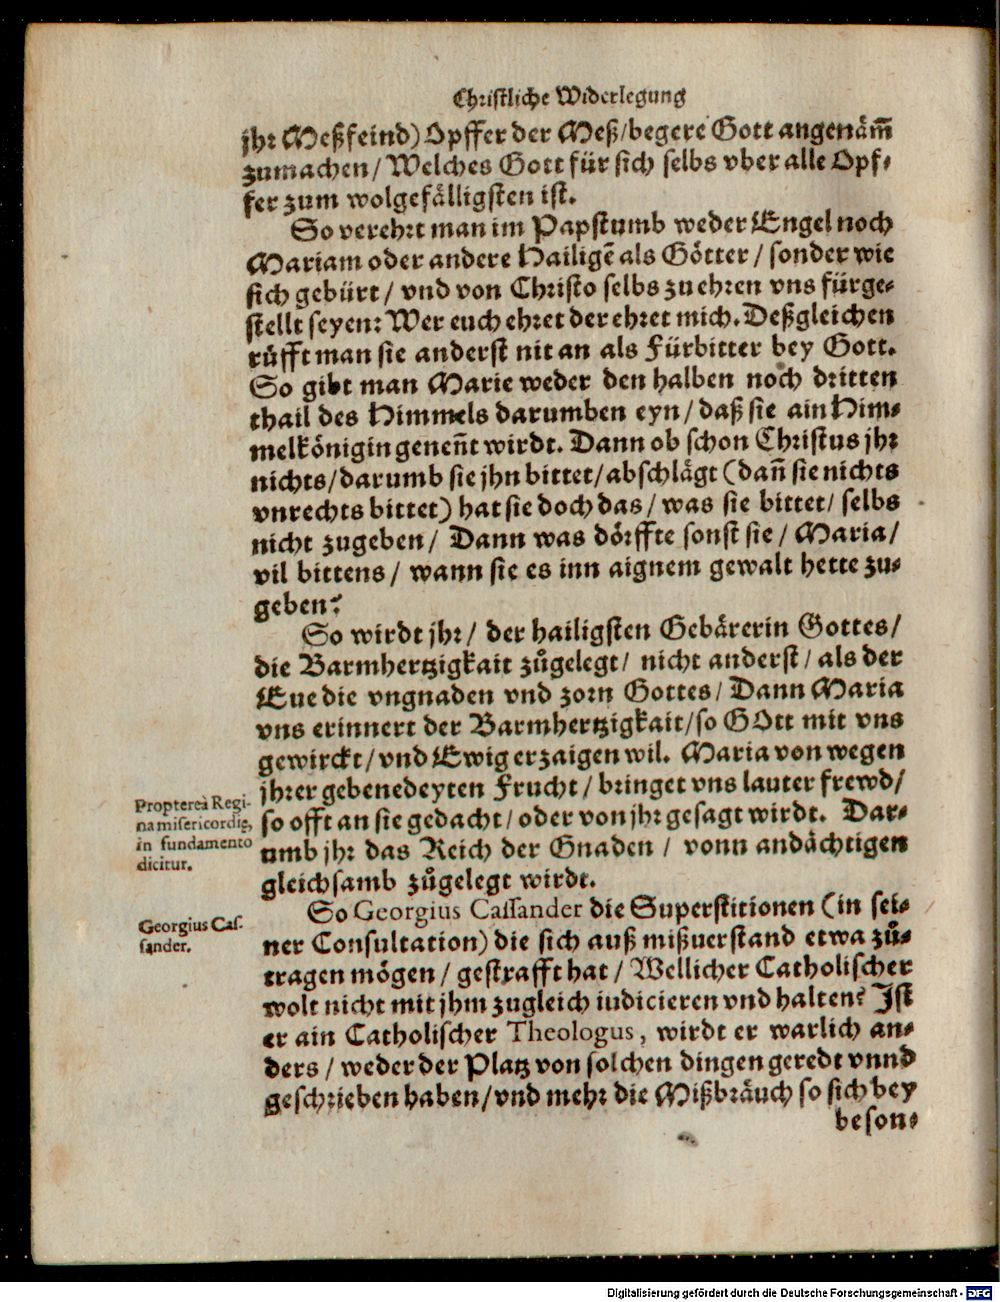 Christliche Widerlegung
jhr Meßfeind) Opffer der Meß/begere Gott angenäm̃
zumachen/ Welches Gott für sich selbs vber alle Opf-
fer zum wolgefälligsten ist.
So verehrt man im Papstumb weder Engel noch
Mariam oder andere Hailigẽ als Götter/ sonder wie
sich gebürt/ vnd von Christo selbs zu ehren vns fürge-
stellt seyen: Wer euch ehret der ehret mich. Deßgleichen
rüfft man sie anderst nit an als Fürbitter bey Gott.
So gibt man Marie weder den halben noch dritten
thail des Himmels darumben eyn/ daß sie ain Him-
melkönigin geneñt wirdt. Dann ob schon Christus jhr
nichts/darumb sie jhn bittet/abschlägt (dañ sie nichts
vnrechts bittet) hat sie doch das/ was sie bittet/ selbs
nicht zugeben/ Dann was dörffte sonst sie/ Maria/
vil bittens/ wann sie es inn aignem gewalt hette zu-
geben?
So wirdt jhr/ der hailigsten Gebärerin Gottes/
die Barmhertzigkait zůgelegt/ nicht anderst/ als der
Eue die vngnaden vnd zorn Gottes/ Dann Maria
vns erinnert der Barmhertzigkait/so GOtt mit vns
gewirckt/vnd Ewig erzaigen wil. Maria von wegen
jhrer gebenedeyten Frucht/ bringet vns lauter frewd/
Propterea Regi-
na misericordię,
in fundamento
dicitur.
so offt an sie gedacht/ oder von jhr gesagt wirdt. Dar-
umb jhr das Reich der Gnaden/ vonn andächtigen
gleichsamb zůgelegt wirdt.
Georgius Cas-
sander.
So Georgius Cassander die Superstitionen (in sei-
ner Consultation) die sich auß mißuerstand etwa zů-
tragen mögen/ gestrafft hat/ Wellicher Catholischer
wolt nicht mit jhm zugleich iudicieren vnd halten? Ist
er ain Catholischer Theologus, wirdt er warlich an-
ders/ weder der Platz von solchen dingen geredt vnnd
geschrieben haben/vnd mehr die Mißbräuch so sich bey
beson-
Digitalisierung gefördert durch die Deutsche Forschungsgemeinschaft - DFG